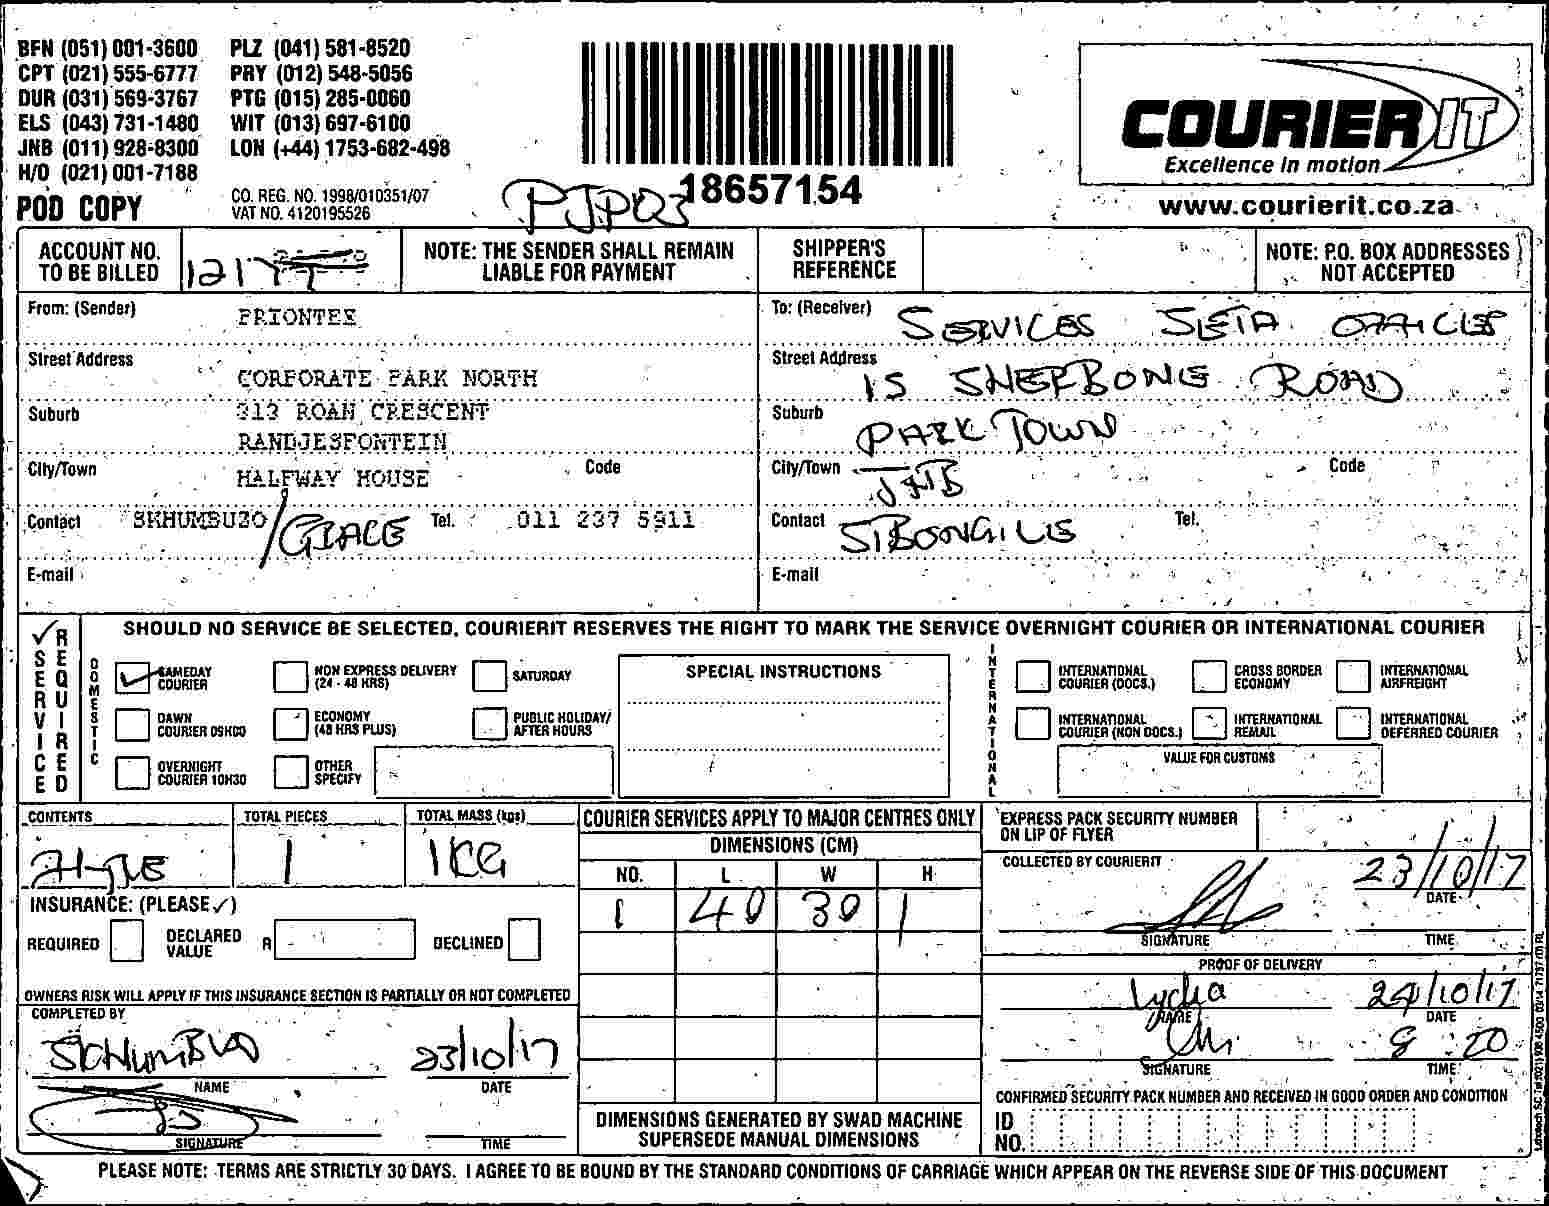 BFN (051) 001-3600 PLZ (041) 581-8520
CPT (021) 555-6777 PRY (012) 548-5056
DUR (031) 569-3767 PTG (015) 285-0060
ELS (043) 731-1480 WIT (013) 697-6100
JNB (011) 928-8300 LON (+44) 1753-682-498
H/O (021) 001-7188
POD COPY
CO. REG. NO. 1998/010351/07
VAT NO. 4120195526
18657154
COURIER IT
Excellence in motion
www.courierit.co.za
ACCOUNT NO. TO BE BILLED
NOTE: THE SENDER SHALL REMAIN LIABLE FOR PAYMENT
SHIPPER'S REFERENCE
NOTE: P.O. BOX ADDRESSES NOT ACCEPTED
From: (Sender) PRIONTEX
Street Address CORPORATE PARK NORTH
Suburb 313 ROAN CRESCENT
RANDJESFONTEIN
City/Town HALFWAY HOUSE Code
Contact SKHUMBUZO / GRACE Tel. 011 237 5911
E-mail
To: (Receiver) SERVICES SETA OFFICES
Street Address 15 SHERBONE ROAD
Suburb PARKTOWN
City/Town JHB Code
Contact SIBONGILE Tel.
E-mail
SERVICE REQUIRED
SHOULD NO SERVICE BE SELECTED, COURIERIT RESERVES THE RIGHT TO MARK THE SERVICE OVERNIGHT COURIER OR INTERNATIONAL COURIER
DOMESTIC
SAMEDAY COURIER
NON EXPRESS DELIVERY (24 - 48 HRS)
SATURDAY
DAWN COURIER 09H00
ECONOMY (48 HRS PLUS)
PUBLIC HOLIDAY/ AFTER HOURS
OVERNIGHT COURIER 10H30
OTHER SPECIFY
SPECIAL INSTRUCTIONS
INTERNATIONAL
INTERNATIONAL COURIER (DOCS.)
CROSS BORDER ECONOMY
INTERNATIONAL AIRFREIGHT
INTERNATIONAL COURIER (NON DOCS.)
INTERNATIONAL REMAIL
INTERNATIONAL DEFERRED COURIER
VALUE FOR CUSTOMS
CONTENTS
TOTAL PIECES 1
TOTAL MASS (kgs) 1KG
INSURANCE: (PLEASE ✓)
REQUIRED DECLARED VALUE R DECLINED
OWNERS RISK WILL APPLY IF THIS INSURANCE SECTION IS PARTIALLY OR NOT COMPLETED
COMPLETED BY
23/10/17
NAME DATE
SIGNATURE TIME
COURIER SERVICES APPLY TO MAJOR CENTRES ONLY
DIMENSIONS (CM)
NO. L W H
1 40 30 1
DIMENSIONS GENERATED BY SWAD MACHINE SUPERSEDE MANUAL DIMENSIONS
EXPRESS PACK SECURITY NUMBER ON LIP OF FLYER
COLLECTED BY COURIERIT
23/10/17
DATE
SIGNATURE TIME
PROOF OF DELIVERY
Lydia 24/10/17
NAME DATE
8:20
SIGNATURE TIME
CONFIRMED SECURITY PACK NUMBER AND RECEIVED IN GOOD ORDER AND CONDITION
ID NO.
PLEASE NOTE: TERMS ARE STRICTLY 30 DAYS. I AGREE TO BE BOUND BY THE STANDARD CONDITIONS OF CARRIAGE WHICH APPEAR ON THE REVERSE SIDE OF THIS DOCUMENT